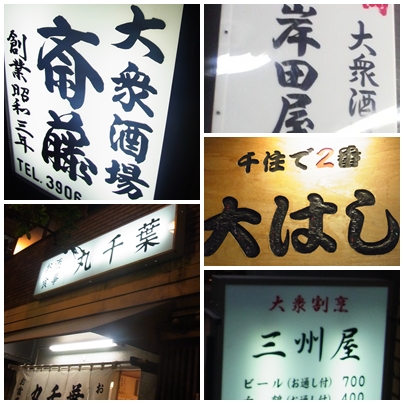 大衆酒場
斎藤
創業昭和三年
TEL.3906
大衆酒
岸田屋
千住で2番
大はし
丸千葉
丸千葉
大衆割烹
三州屋
ビール(お通し付) 700
(お通し付) 400